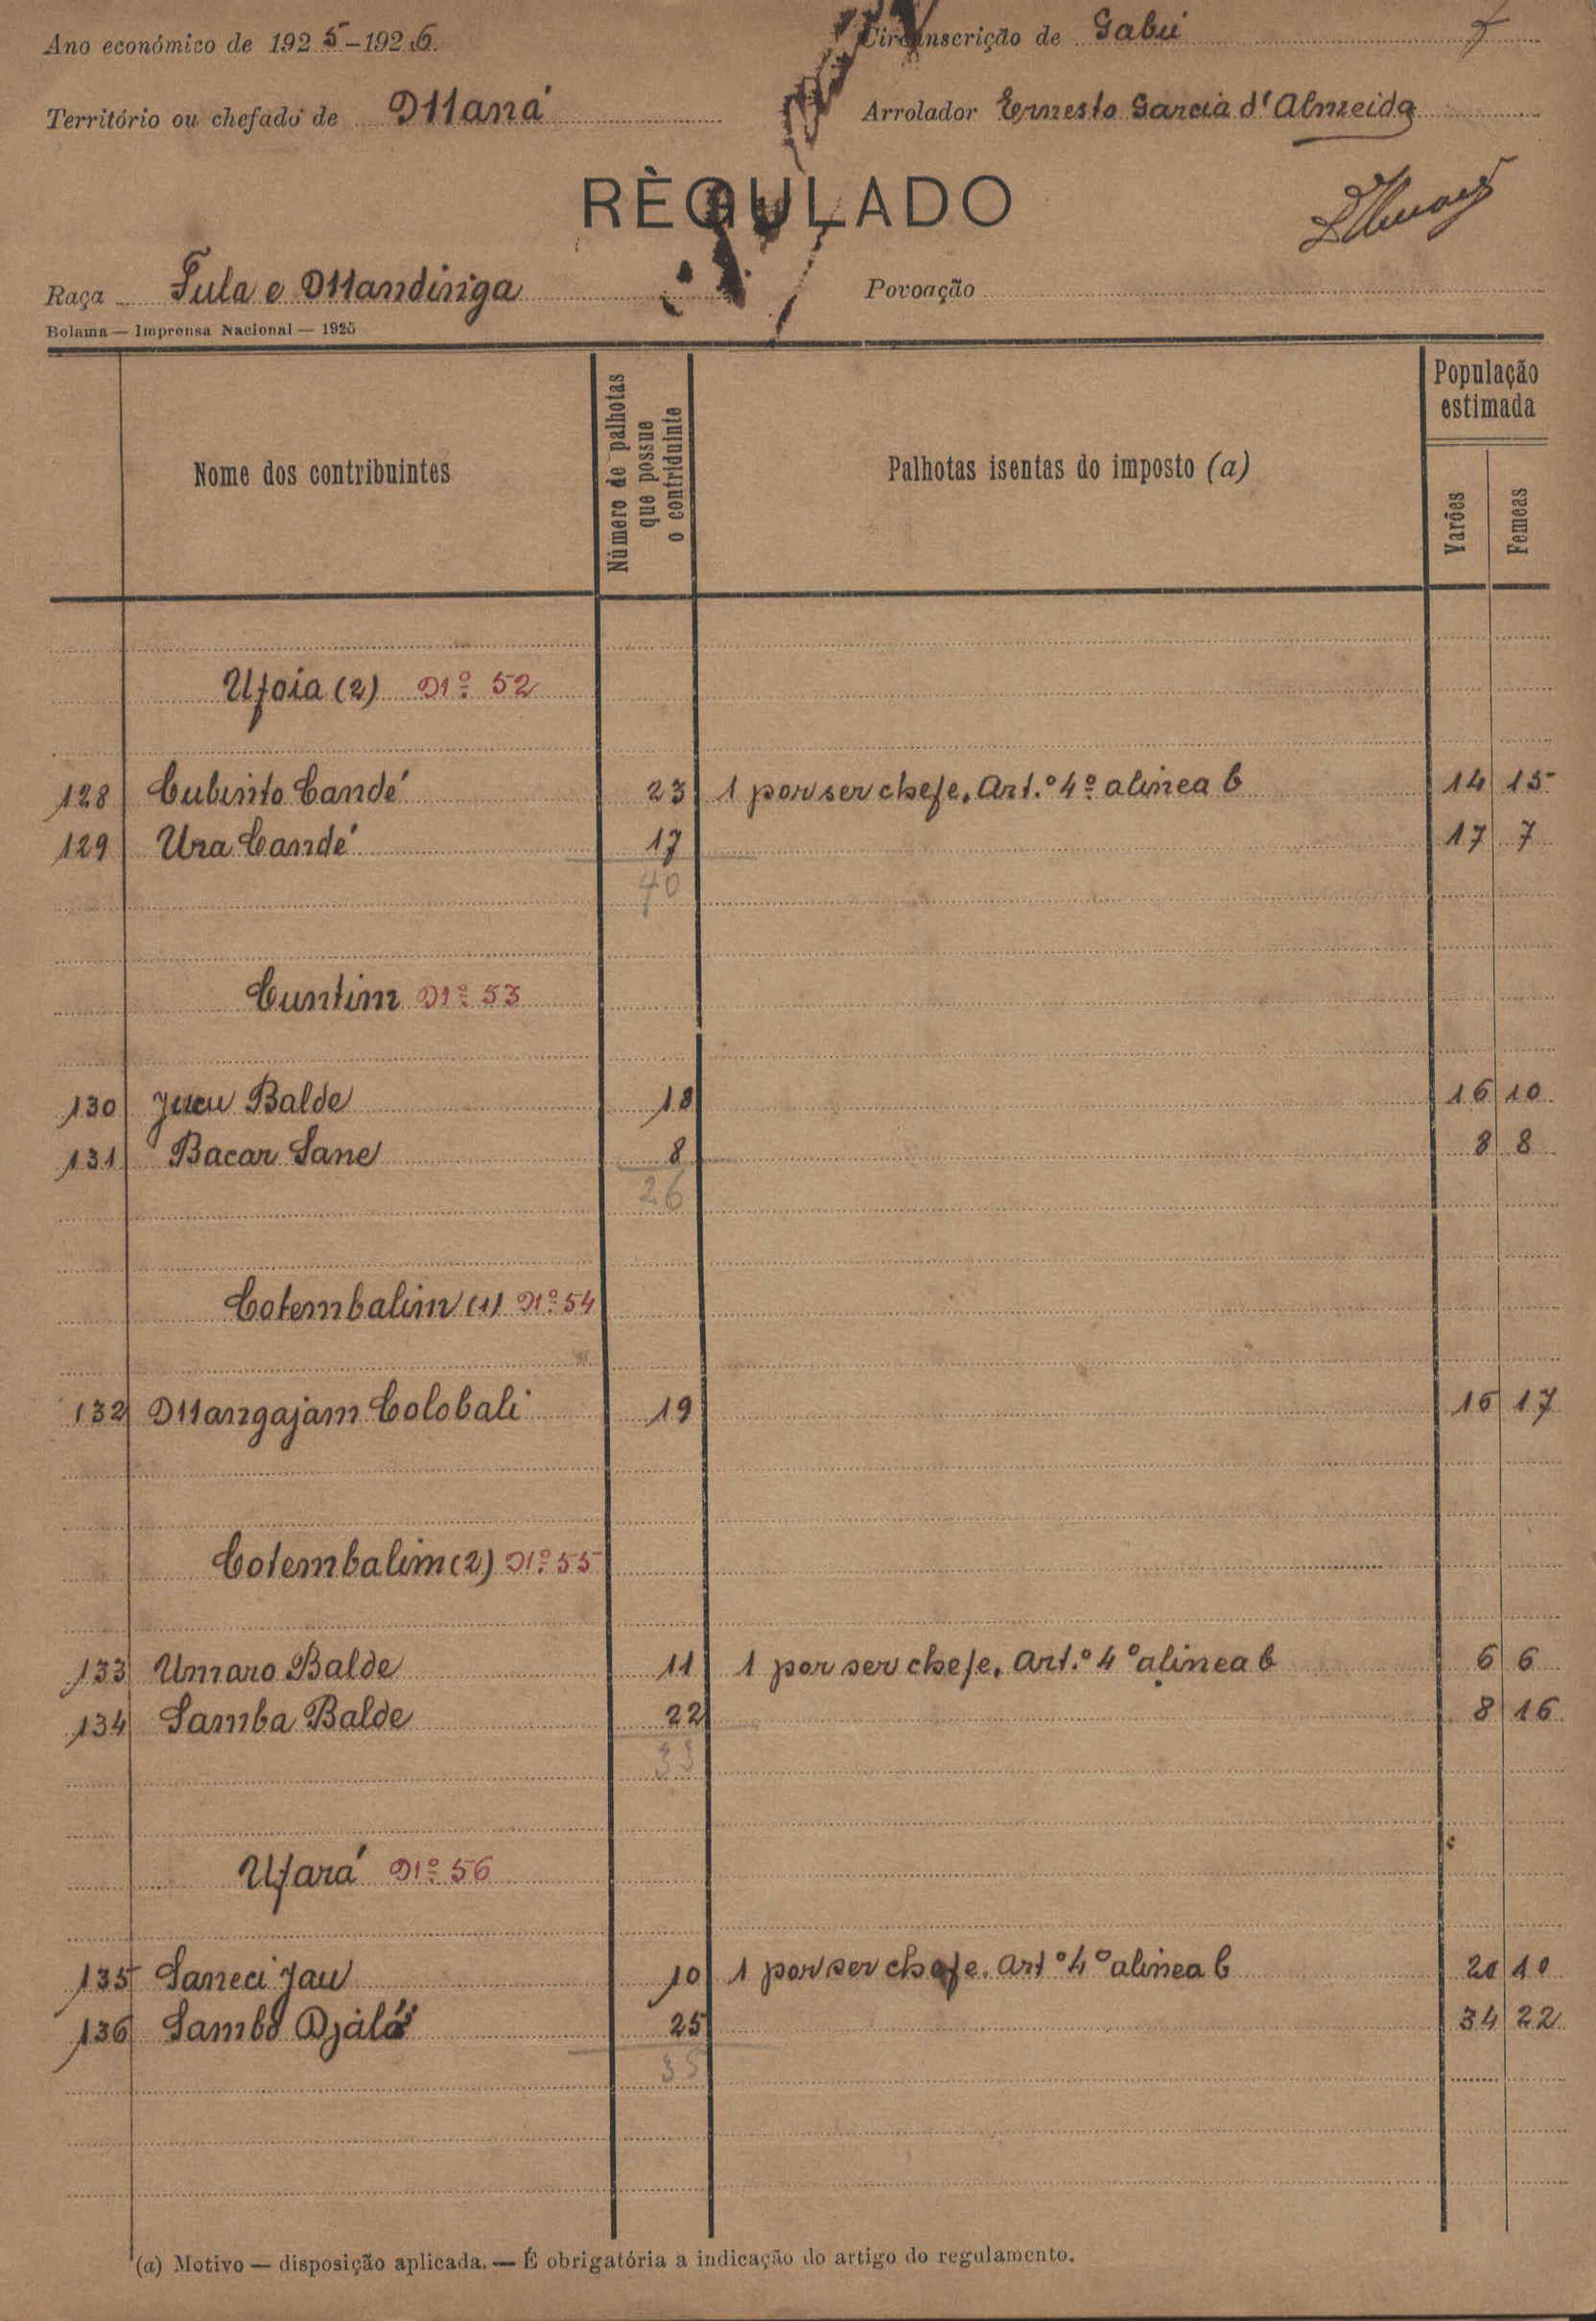 Ano económico de 1925-1926. Circunscrição de Gabú 7
Território ou chefado de Maná Arrolador Ernesto Garcia d'Almeida
RÈGULADO
Raça Fula e Mandinga Povoação
Bolama — Imprensa Nacional — 1925
Nome dos contribuintes Número de palhotas que possue o contriduinte Palhotas isentas do imposto (a) População estimada
Varões Femeas
Ufoia (2) Nº 52
128 Cubinto Candé 23 1 por ser chefe, Art.º 4º alinea b 14 15
129 Ura Candé 17 17 7
40
Cuntim Nº 53
130 Jucu Balde 18 16 10
131 Bacar Sane 8 8 8
26
Cotembalim (1) Nº 54
132 Mangajam Colobali 19 16 17
Cotembalim (2) Nº 55
133 Umaro Balde 11 1 por ser chefe, Art.º 4º alinea b 6 6
134 Samba Balde 22 8 16
33
Ufará Nº 56
135 Saneci Jau 10 1 por ser chefe. Artº 4º alinea b 20 10
136 Sambo Djáló 25 34 22
35
(a) Motivo — disposição aplicada. — É obrigatória a indicação do artigo do regulamento.